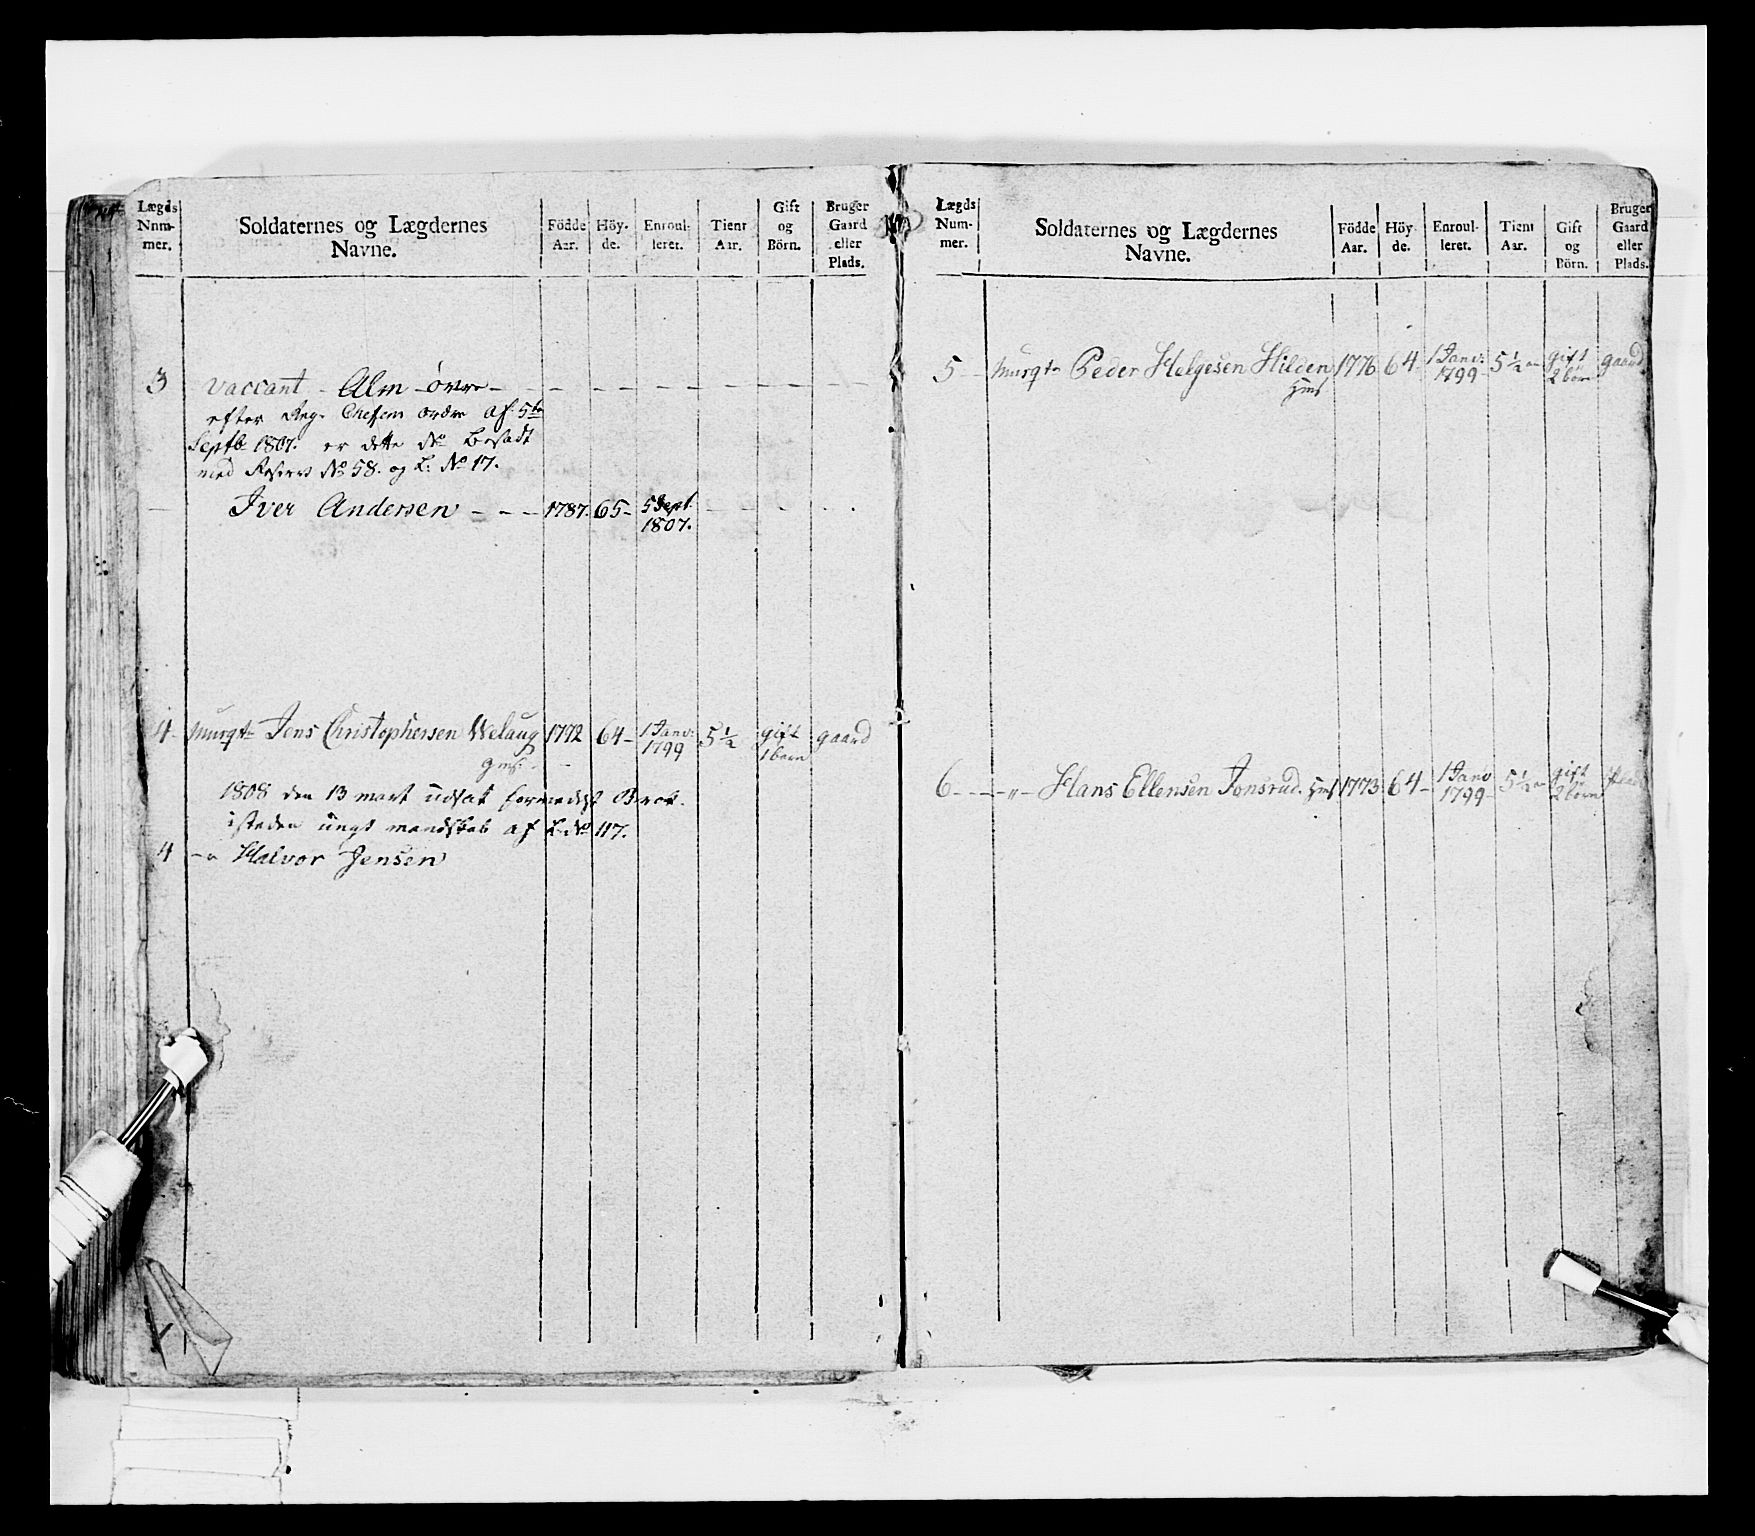 Lægds Nummer.
Soldaternes og Lægdernes Navne.
Födde Aar.
Höyde.
Enroulleret.
Tient Aar.
Gift og Börn.
Bruger Gaard eller Plads.
3 vaccant - Alm övre - - - - - - -
efter Reg. Chefens ordre af 5te
Septb 1807. er dette No besadt
med Reserve No 58. og L: No 17.
Iver Andersen - - - 1787. 65- 5 Sept. 1807.
4- Jens Christophersen Welaug 1772 64- 1 Janv: 1799 5½ gift 1 barn gaard
1808 den 13 mart udsat formedelst Brok.
isteden ungt mandskab af L: No 117.
4 -"- Halvor Jensen
Lægds Nummer.
Soldaternes og Lægdernes Navne.
Födde Aar.
Höyde.
Enroulleret.
Tient Aar.
Gift og Börn.
Bruger Gaard eller Plads.
5 - Peder Helgesen Hilden 1776 64- 1 Janv: 1799- 5½ gift 2 börn gaard
6 - - - " - Hans Ellensen Jonsrud. 1773 64- 1 Janv 1799- 5½ gift 2 börn